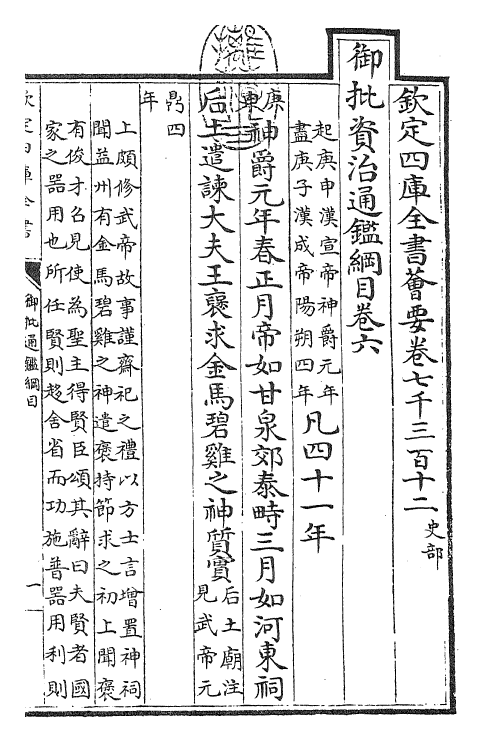 欽定四庫全書薈要卷七千三百十二 史部
御批資治通鑑綱目卷六
起庚申漢宣帝神爵元年
盡庚子漢成帝陽朔四年
凡四十一年
庚
神爵元年春正月帝如甘泉郊泰畤三月如河東祠
后土遣諫大夫王襃求金馬碧雞之神質實
后土廟注
見武帝元
鼎四
年
上頗修武帝故事謹齋祀之禮以方士言增置神祠
聞益州有金馬碧雞之神遣襃持節求之初上聞襃
有俊才召見使為聖主得賢臣頌其辭曰夫賢者國
家之器用也所任賢則趍舍省而功施普器用利則
欽定四庫全書
御批通鑑綱目
一